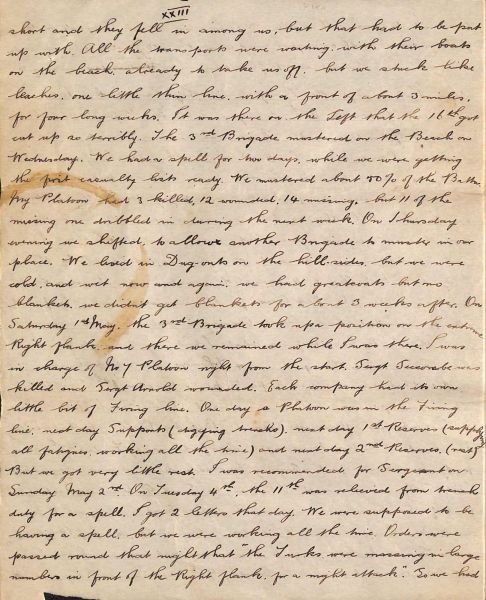 XXIII
short and they fell in among us, but that had to be put
up with. All the transports were waiting, with their boats
on the beach, already to take us off, but we stuck like
leaches, one little thin line, with a front of about 3 miles,
for four long weeks. It was there on the Left that the 16th got
cut up so terribly. The 3rd Brigade mustered on the Beach on
Wednesday. We had a spell for two days, while we were getting
the first casualty lists ready. We mustered about 50% of the Battn.
My Platoon had 3 killed, 12 wounded, 14 missing, but 11 of the
missing one dribbled in during the next week. On Thursday
evening we shifted, to allow another Brigade to muster in our
place. We lived in Dug-outs on the hill-sides, but we were
cold, and wet now and again, we had greatcoats but no
blankets, we didn't get blankets for about 3 weeks after. On
Saturday 1st May, the 3rd Brigade took up a position on the extreme
Right flank and there we remained while I was there. I was
in charge of No 7 Platoon right from the start. Sergt Seccombe was
killed and Sergt Arnold wounded. Each company had its own
little bit of Firing line. One day a Platoon was in the Firing
line, next day Supports (digging trenches), next day 1st Reserves (supplying
all fatigues, working all the time) and next day 2nd Reserves, (rest)
But we got very little rest. I was recommended for Sergeant on
Sunday May 2nd On Tuesday 4th, the 11th was relieved from trench
duty for a spell. I got 2 letters that day. We were supposed to be
having a spell, but we were working all the time. Orders were
passed round that night that "the Turks were massing in large
numbers in front of the Right flank, for a night attack". So we had